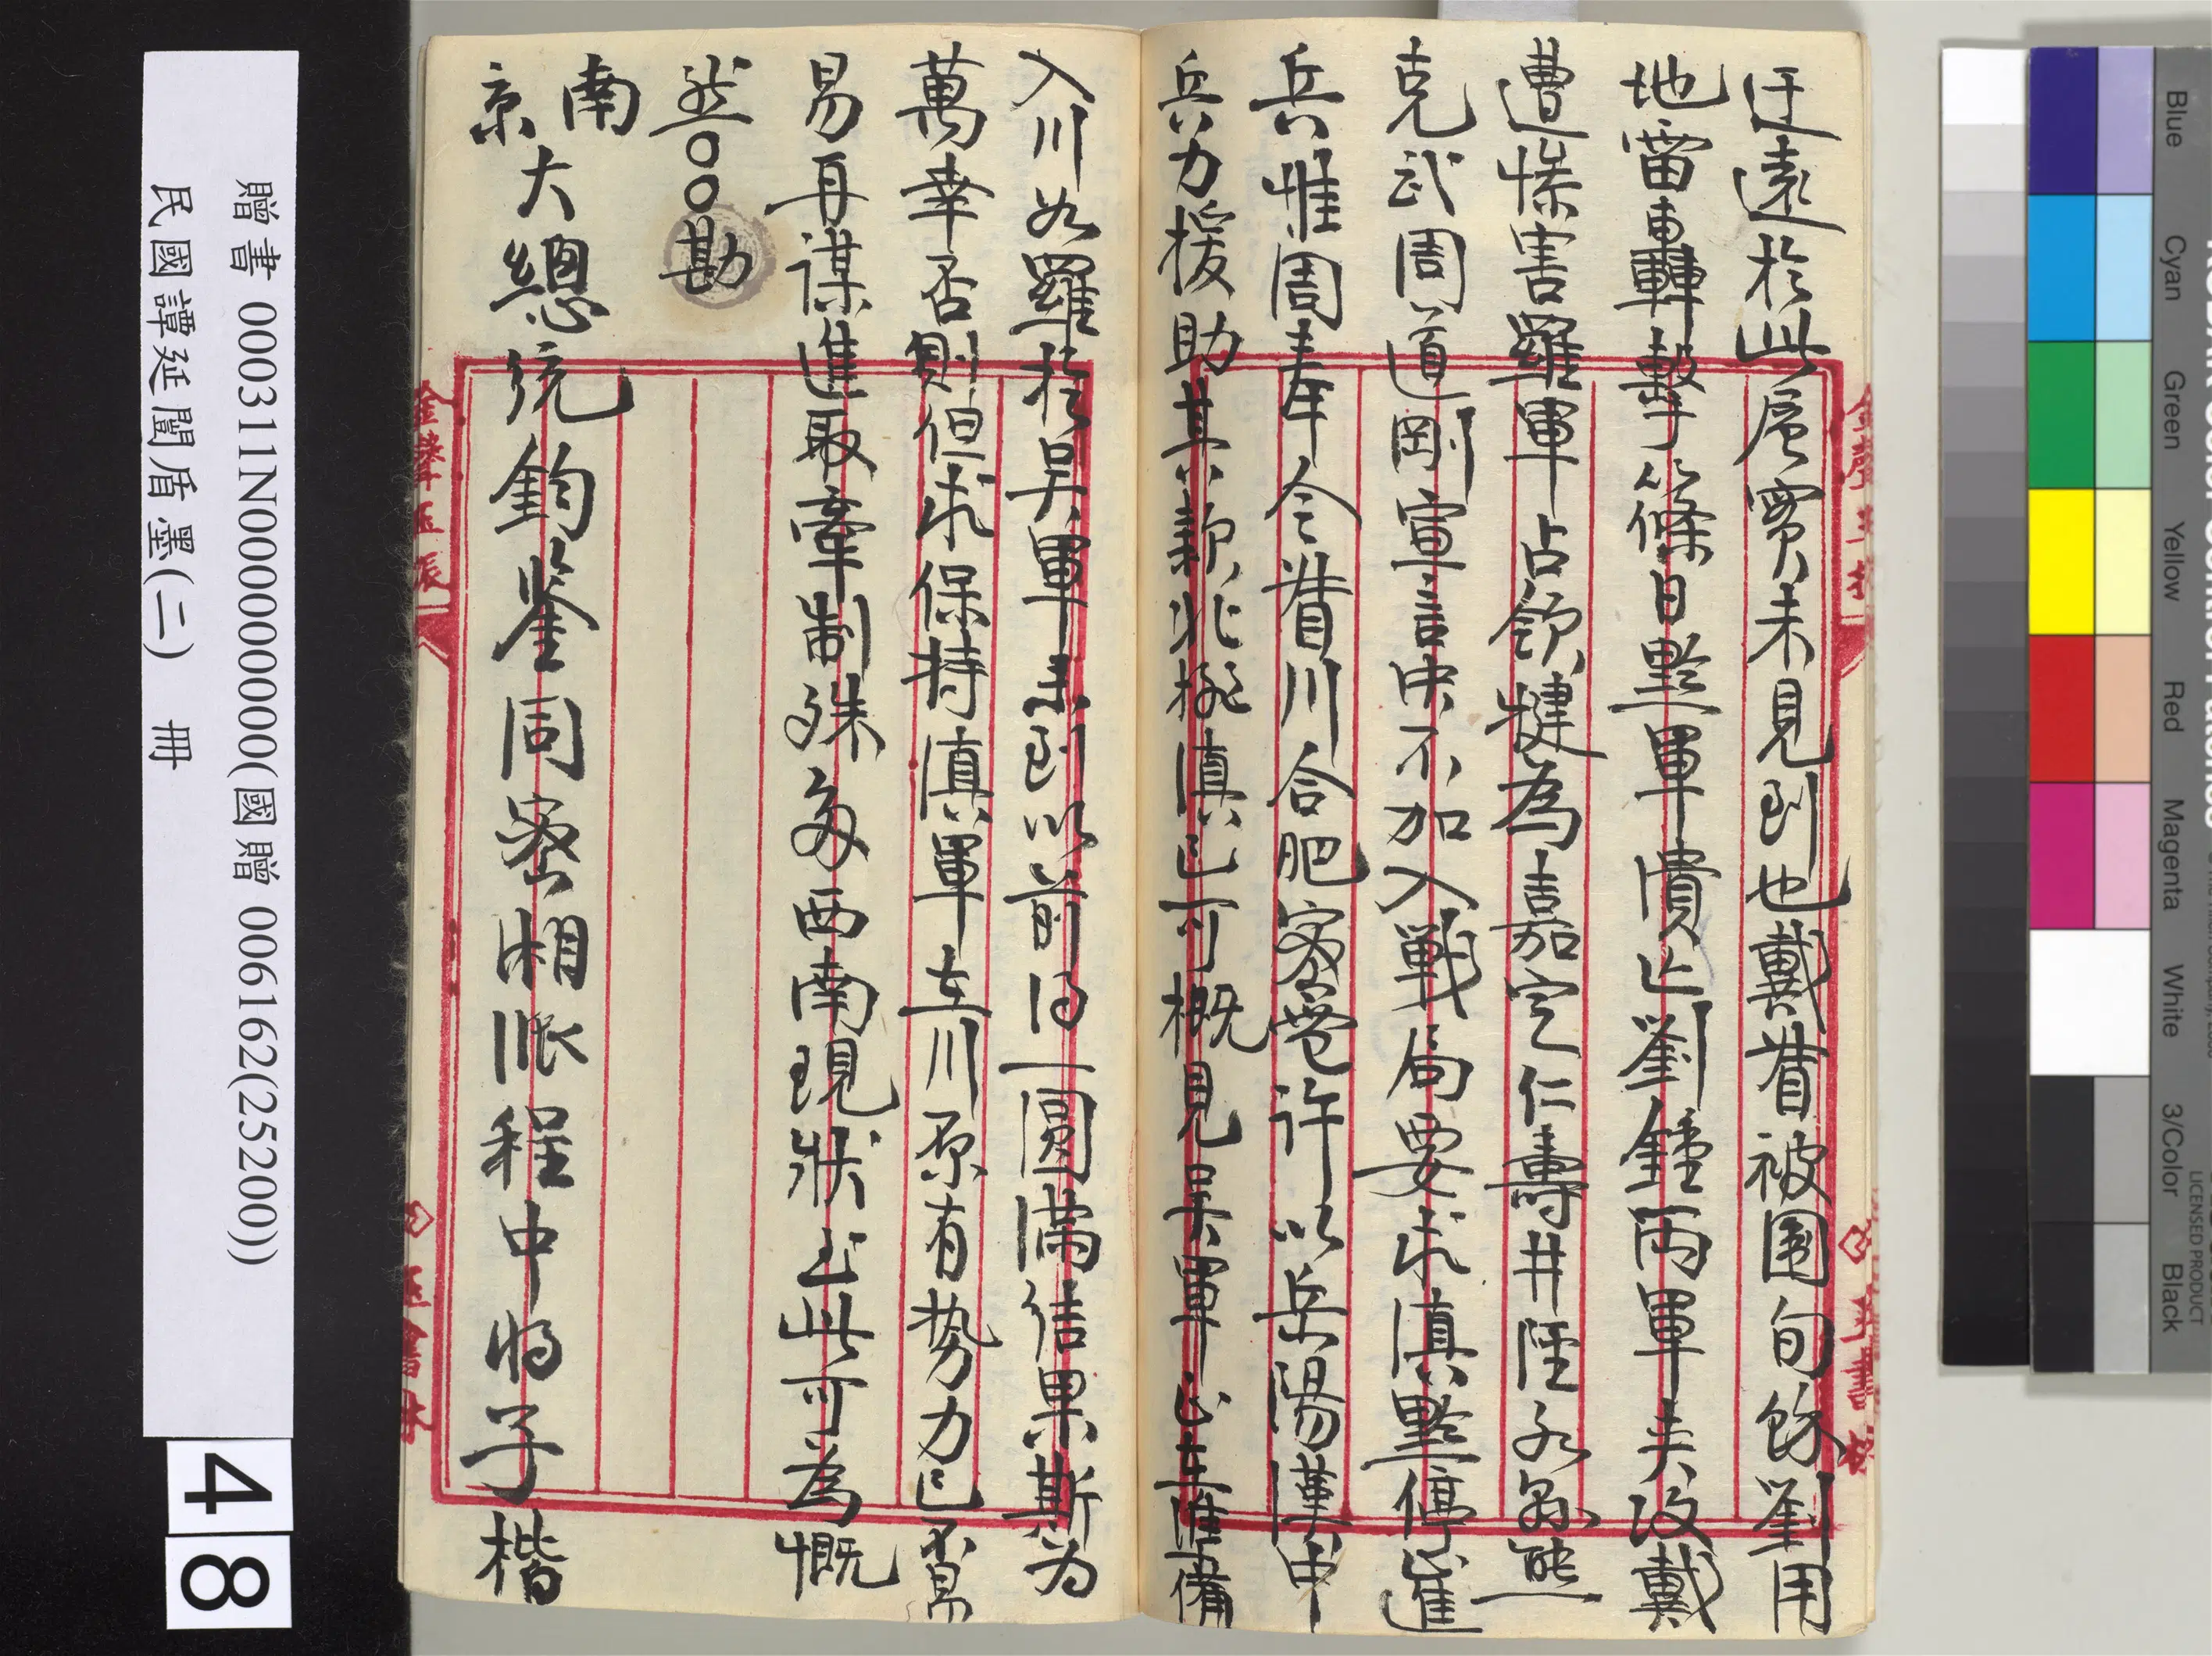 迂遠於此層實未見到也戴督被圍旬餘劉用
地雷轟擊篠日黔軍潰亡劉鍾兩軍夾攻戴
遭慘害羅軍占領犍為嘉定仁壽井陘各縣熊
克武周道剛宣言中不加入戰局要求滇黔停進
兵惟周奉令督川合肥密電許以岳陽漢中
兵力援助其款挑滇已可概見吳軍正在準備
入川如羅於吳軍未到以前得一圓滿結果斯為
萬幸否則但求保持滇軍在川原有勢力已不易
易再謀進取牽制殊多西南現狀止此可為慨
然〇〇勘
南京大總統鈞鑒同密湘派程中將子楷
金聲玉振
贈書 000311N000000000000(國贈 006162(25200))
民國譚延闓盾墨(二) 冊
48
Blue
Cyan
Green
Yellow
Red
Magenta
White
3/Color
Black
LICENSED PRODUCT